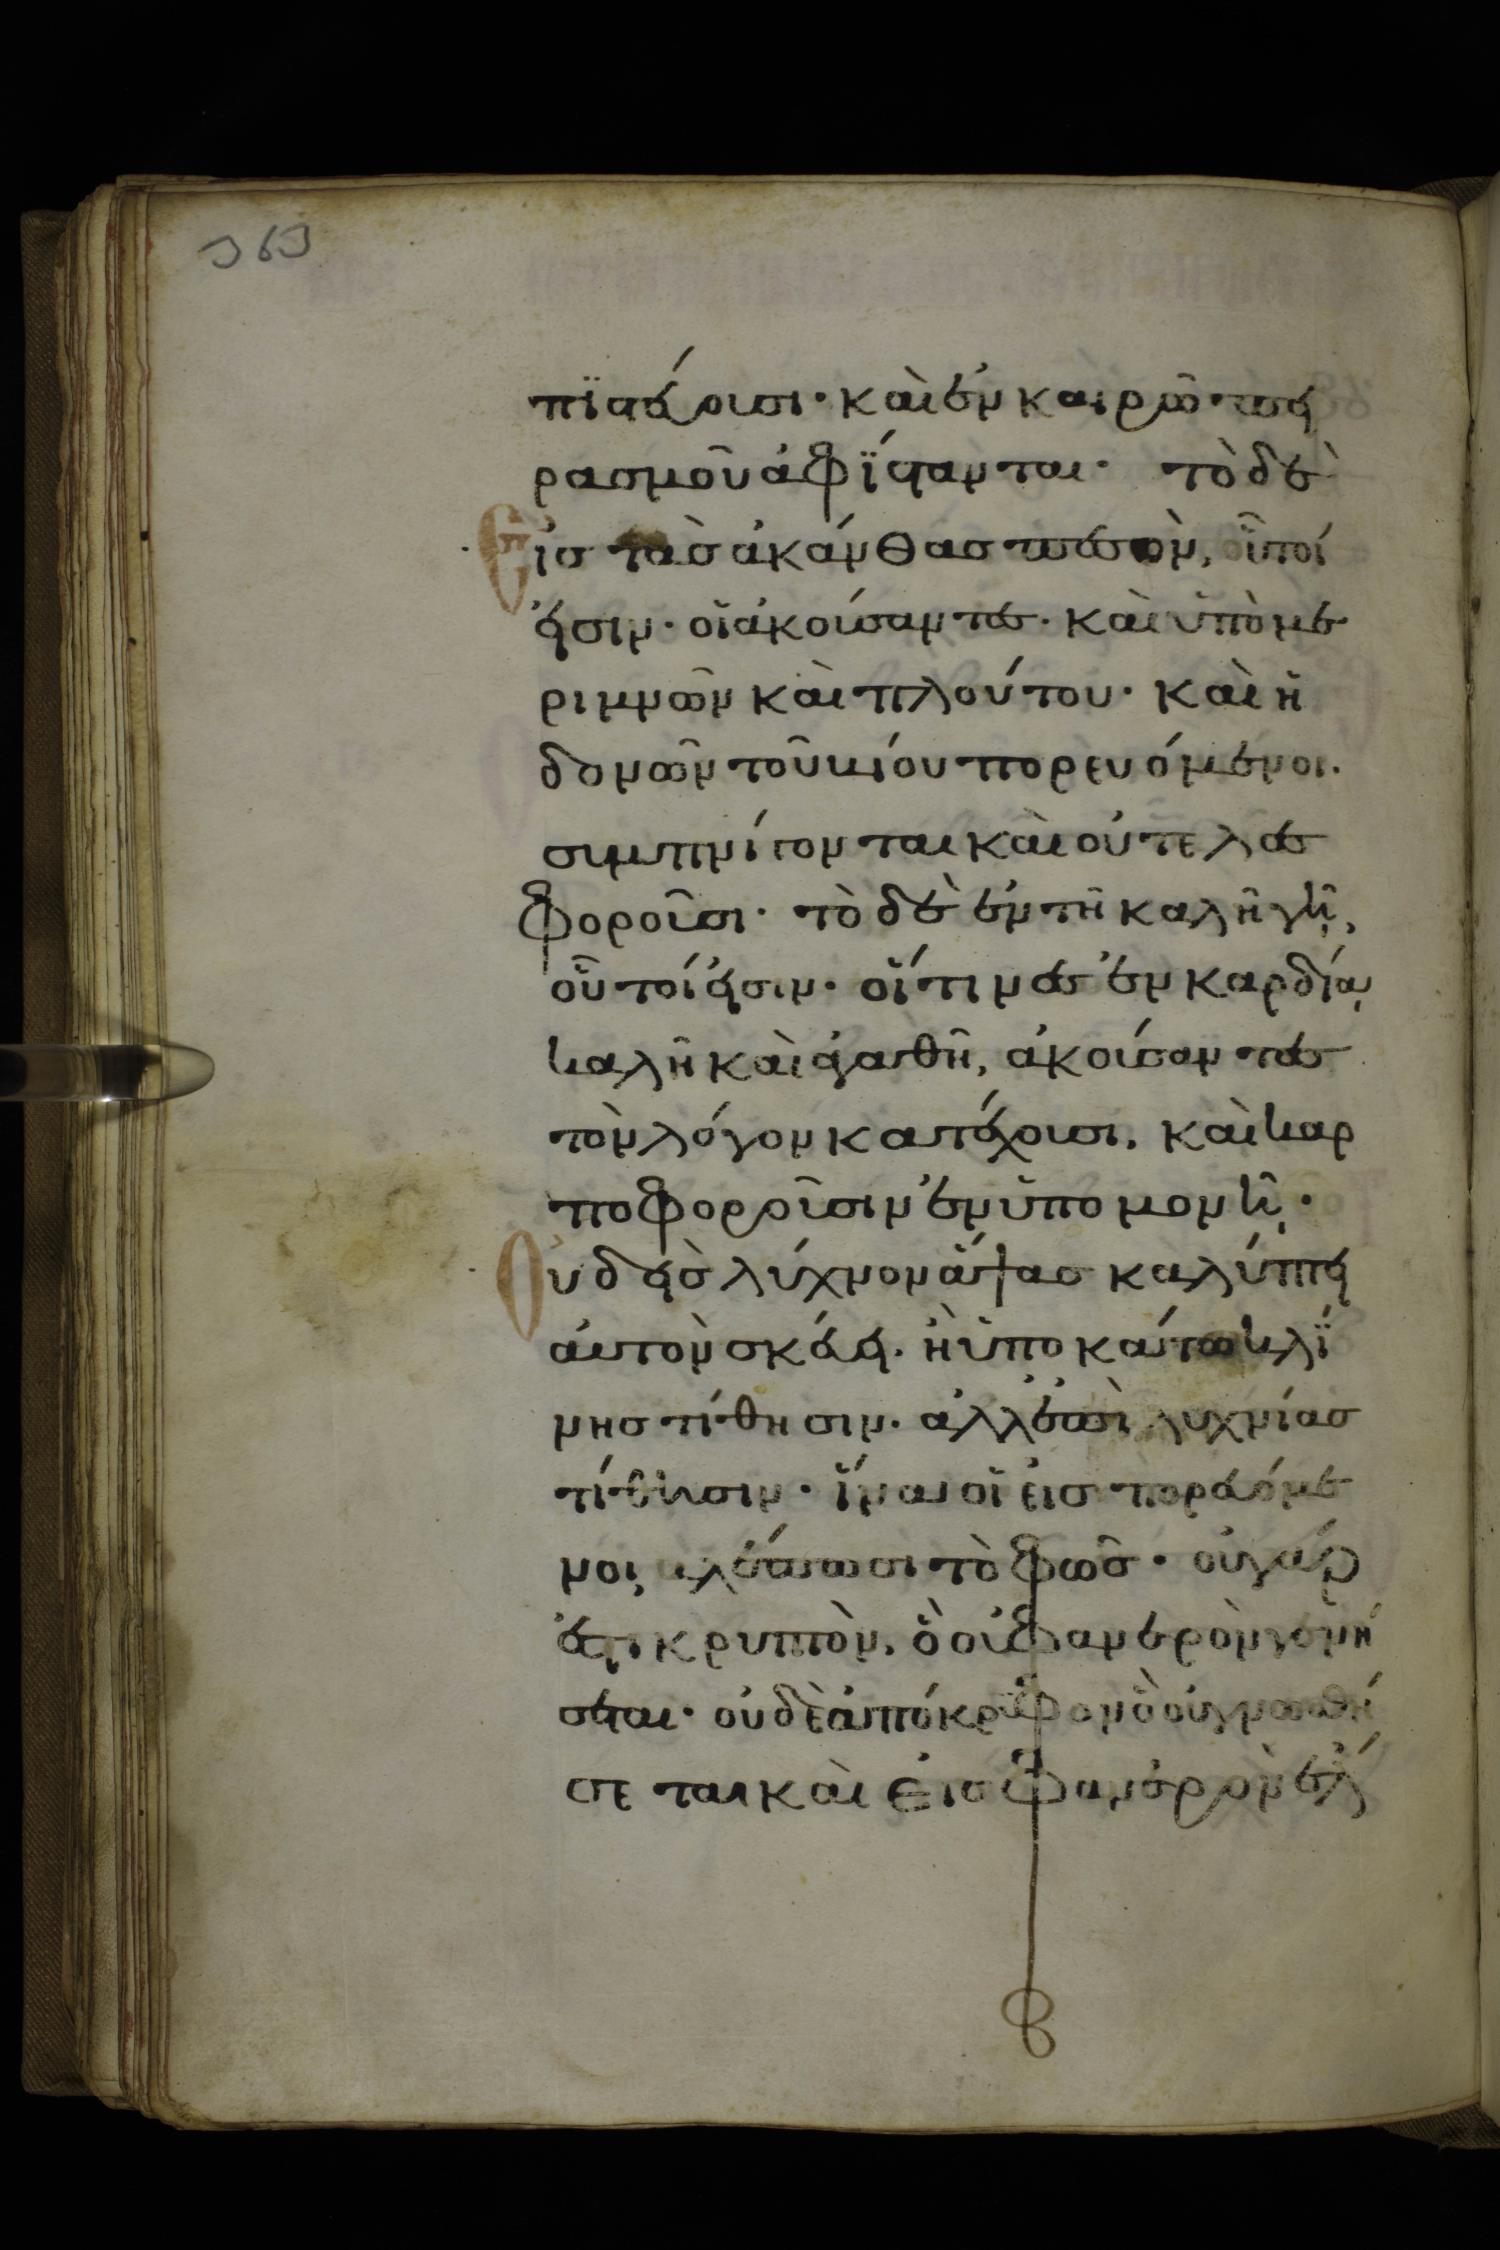 363
πϊστεύουσι· καὶ ἐν καιρῶ πει
ρασμοῦ ἀφΐστανται· τὸ δὲ
εἰς τὰς ἀκάνθας πεσὸν, οὗτοί
εἰσιν· οἱ ἀκούσαντες· καὶ ὑπὸ με
ριμνῶν καὶ πλούτου· καὶ ἡ
δονῶν τοῦ βίου πορευόμενοι.
συμπνίγονται καὶ οὐ τελεσ
φοροῦσι· τὸ δὲ ἐν τῆ καλῆ γῆ,
οὗτοί εἰσιν· οἵτινες ἐν καρδία
καλῆ καὶ ἀγαθῆ, ἀκούσαντες
τὸν λόγον κατέχουσι, καὶ καρ
ποφοροῦσιν ἐν ὑπομονῆ·
Οὐδεὶς λύχνον ἅψας καλύπτει
αὐτὸν σκεύει· ἢ ὑποκάτω κλϊ
νης τίθησιν· ἀλλ' ἐπὶ λυχνίας
τίθησιν· ἵνα οἱ εἰσπορευόμε
νοι βλέπωσι τὸ φῶς· οὐ γάρ
ἐστι κρυπτὸν, ὃ οὐ φανερὸν γενή
σεται· οὐδὲ ἀπόκρυφον ὃ οὐ γνωσθή
σεται καὶ εἰς φανερὸν ἔλ